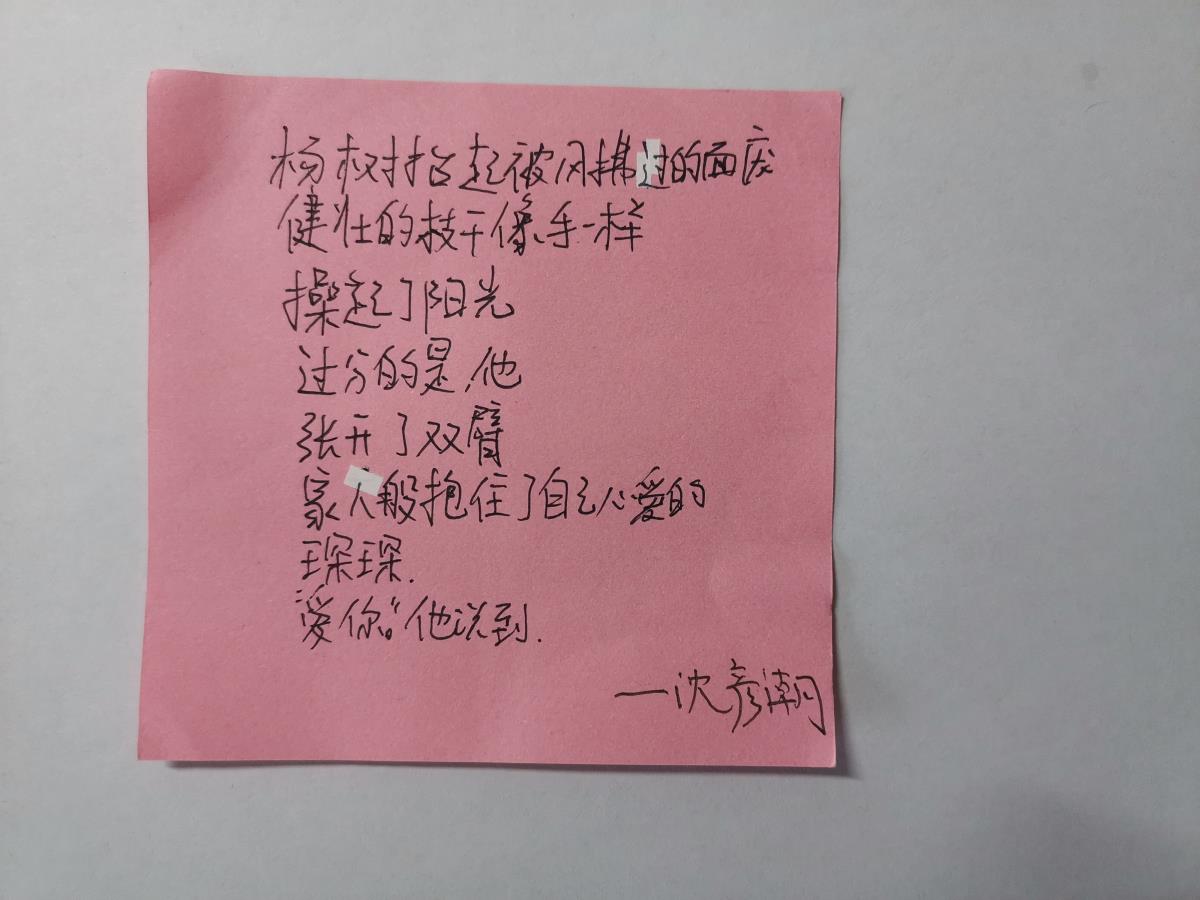 杨树抬起被风拂过的面庞
健壮的枝干像手一样
操起了阳光
过分的是,他
张开了双臂
家人般抱住了自己心爱的
琛琛.
“爱你。”他说到.
—沈彦潮